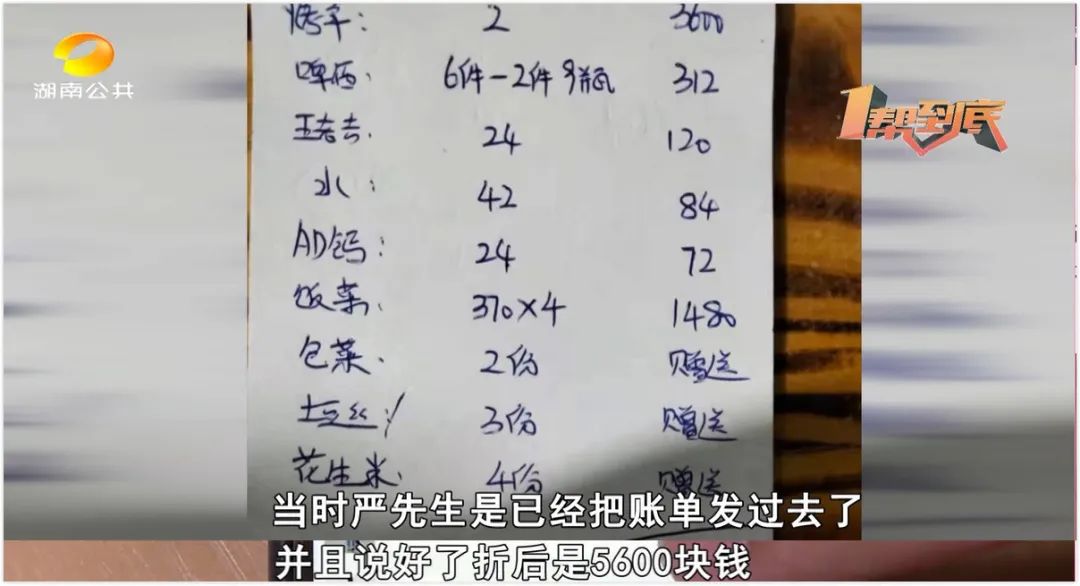 湖南公共
1帮到底
烤羊: 2 3600
啤酒: 6件-2件9瓶 312
王老吉: 24 120
水: 42 84
AD钙: 24 72
饭菜: 370×4 1480
包菜: 2份 赠送
土豆丝: 3份 赠送
花生米: 4份 赠送
当时严先生是已经把账单发过去了
并且说好了折后是5600块钱